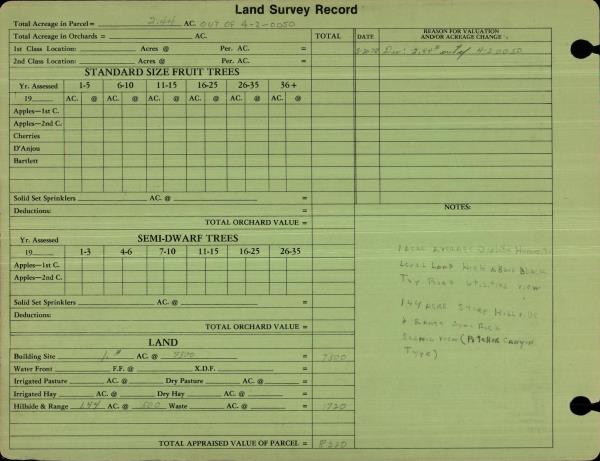 Land Survey Record
Total Acreage in Parcel= 2.44 AC. OUT OF 4-2-0050
Total Acreage in Orchards = AC. TOTAL
1st Class Location: Acres @ Per. AC. =
2nd Class Location: Acres @ Per. AC. =
STANDARD SIZE FRUIT TREES
Yr. Assessed 1-5 6-10 11-15 16-25 26-35 36+
19 AC. @ AC. @ AC. @ AC. @ AC. @ AC. @
Apples—1st C.
Apples—2nd C.
Cherries
D'Anjou
Bartlett
Solid Set Sprinklers AC. @ =
Deductions: =
TOTAL ORCHARD VALUE =
SEMI-DWARF TREES
Yr. Assessed
19 1-3 4-6 7-10 11-15 16-25 26-35
Apples—1st C.
Apples—2nd C.
Solid Set Sprinklers AC. @ =
Deductions:
TOTAL ORCHARD VALUE =
LAND
Building Site 1 @ 7500 = 7500
Water Front F.F. @ X.D.F. =
Irrigated Pasture AC. @ Dry Pasture AC. @ =
Irrigated Hay AC. @ Dry Hay AC. @ =
Hillside & Range 1.44 AC. @ 500 Waste AC. @ = 720
TOTAL APPRAISED VALUE OF PARCEL = 8220
DATE REASON FOR VALUATION
AND/OR ACREAGE CHANGE
2.44 out of 4-2-0050
NOTES:
1 acre average
Level Land High Above Black
Top Road utilities view
1.44 acre steep hillside
& range
scenic view (Pitcher Canyon
Type)